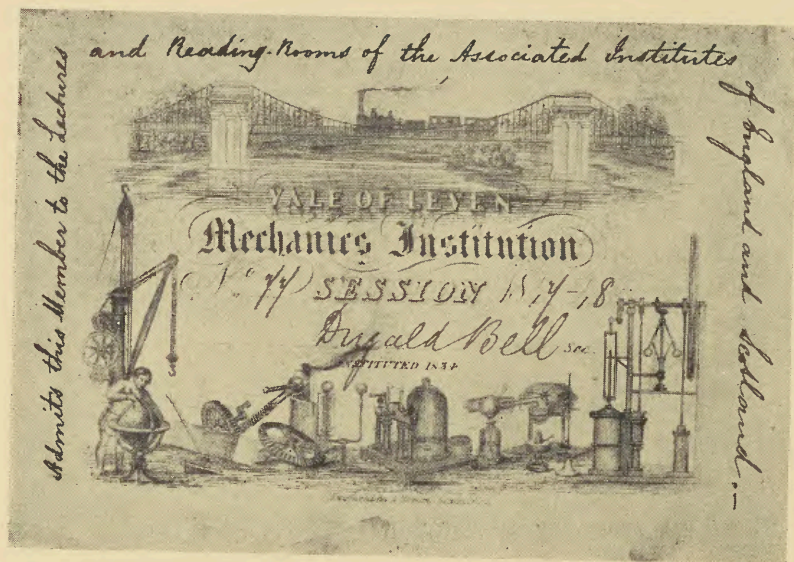 Admits this Member to the Lectures
and Reading-Rooms of the Associated Institutes
of England and Scotland.—
VALE OF LEVEN
Mechanics Institution
No 77 SESSION
Dugald Bell Sec.
INSTITUTED 1834